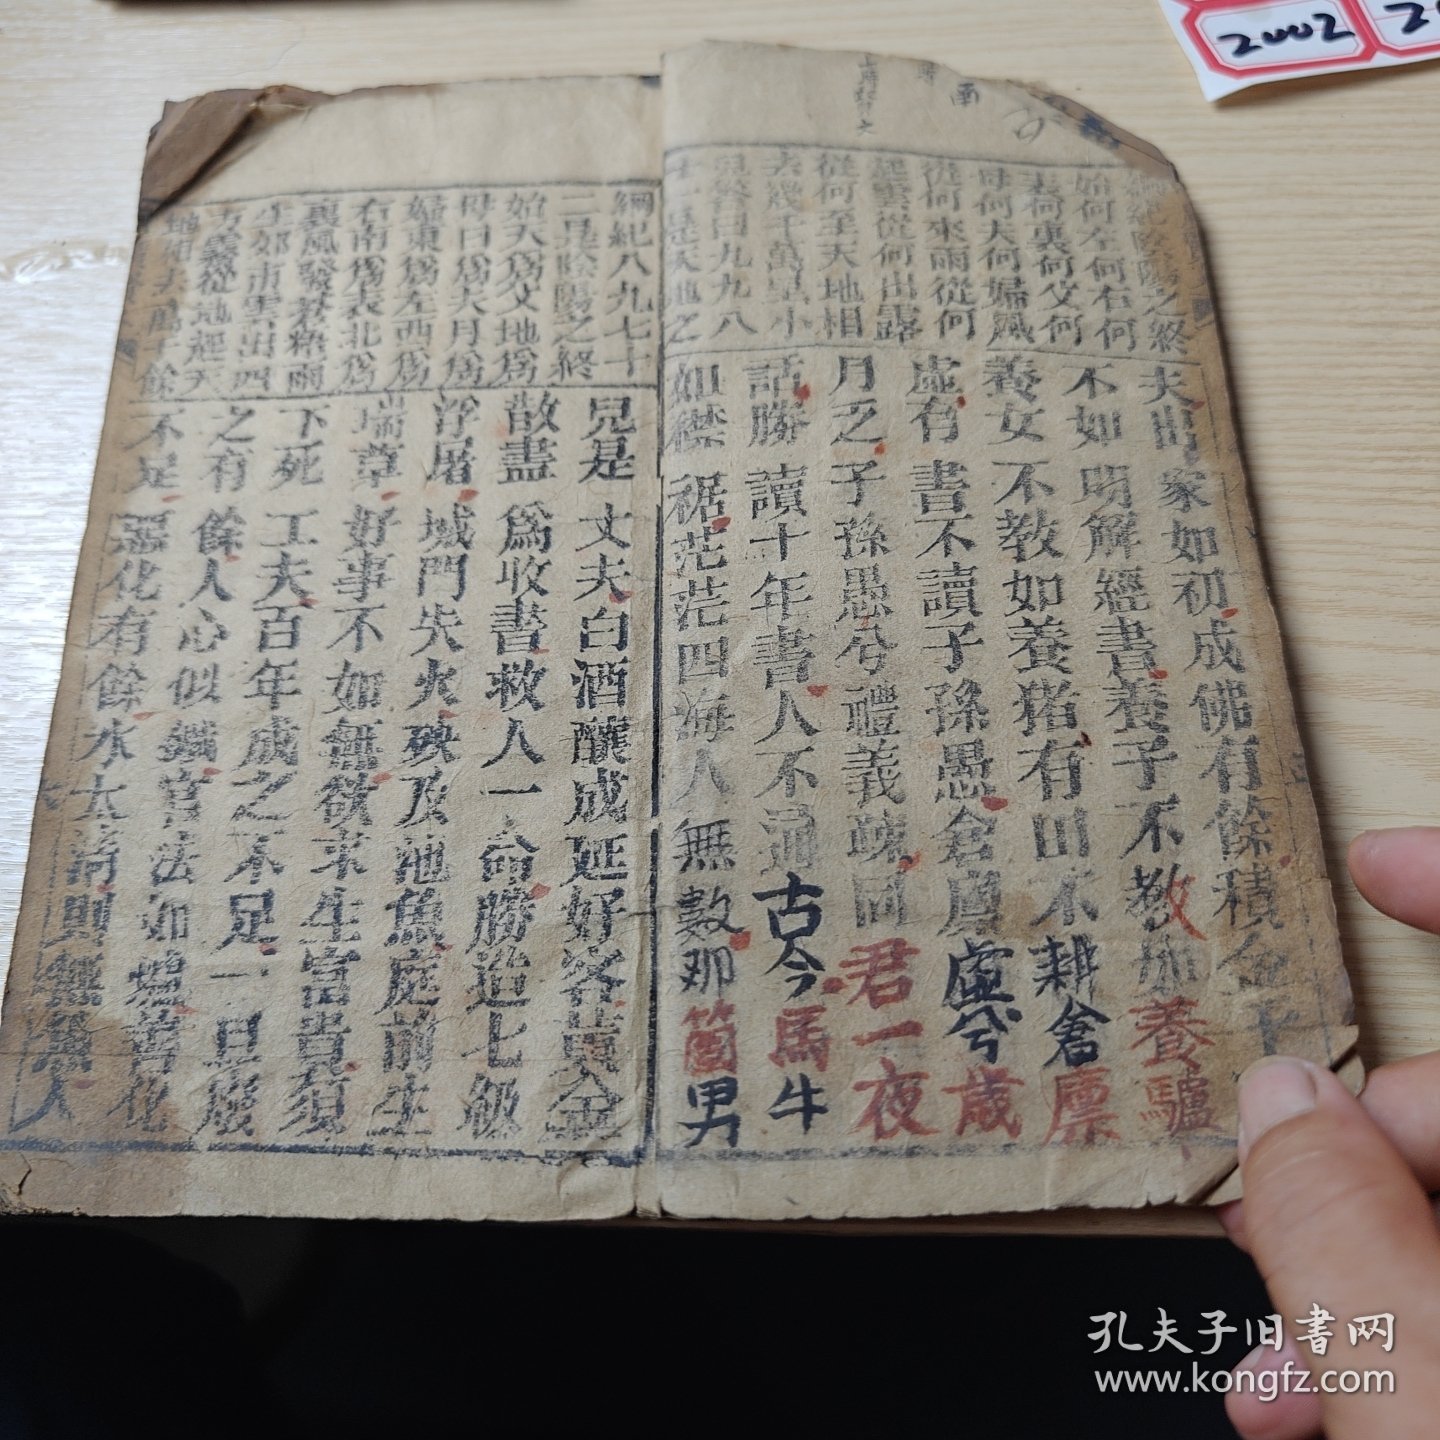 綱紀陰陽之終
始何左何右何
表何裏何父何
母何夫何婦風
從何來雨從何
起雲從何出露
從何至天地相
去幾千萬里小
兒答曰九九八
十一是天地之
夫出家如初成佛有餘積金千
不如明解經書養子不教如養驢
養女不教如養猪有田不耕倉廩
虛有書不讀子孫愚倉廩虛兮歲
月乏子孫愚兮禮義疎同君一夜
話勝讀十年書人不通古今馬牛
如襟裾茫茫四海人無數那箇男
綱紀八九七十
二是陰陽之終
始天爲父地爲
母日爲夫月爲
婦東爲左西爲
右南爲表北爲
裏風發蒼梧雨
生郊市雲出四
方霧從地起天
地相去萬千餘
兒是丈夫白酒釀成延好客黃金
散盡爲收書救人一命勝造七級
浮屠城門失火殃及池魚庭前生
瑞草好事不如無欲求生富貴須
下死工夫百年成之不足一旦廢
之有餘人心似鐵官法如爐善化
不足惡化有餘水太清則無魚人
2002
孔夫子旧書网
www.kongfz.com